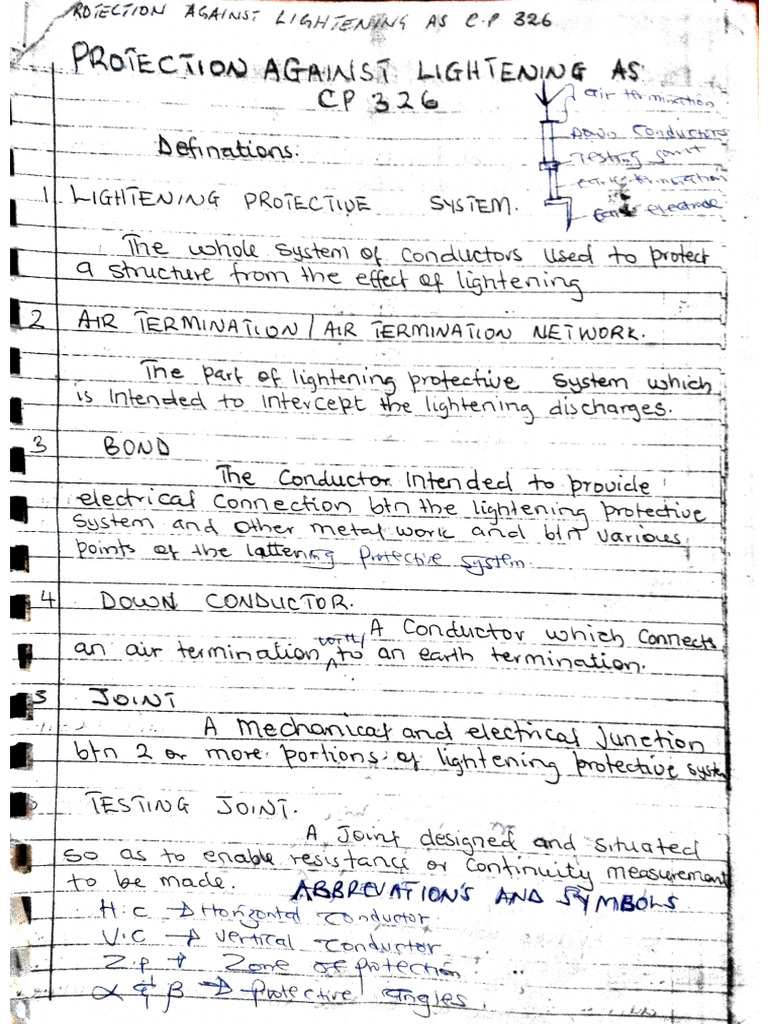 ROTECTION AGAINST LIGHTENING AS C.P 326
PROTECTION AGAINST LIGHTENING AS
CP 326
air termination
Down Conductors
Testing joint
earth termination
Earth electrode
Definations:
1 LIGHTENING PROTECTIVE SYSTEM.
The whole system of conductors used to protect
a structure from the effect of lightening
2 AIR TERMINATION / AIR TERMINATION NETWORK.
The part of lightening protective system which
is intended to intercept the lightening discharges.
3 BOND
The Conductor intended to provide
electrical connection btn the lightening protective
system and other metal work and btn various
points of the lattening protective system
4 DOWN CONDUCTOR.
A Conductor which connects
an air termination with to an earth termination.
5 JOINT
A mechanical and electrical junction
btn 2 or more portions of lightening protective system
TESTING JOINT.
A Joint designed and situated
so as to enable resistance or continuity measurement
to be made. ABBREVATIONS AND SYMBOLS
H.C → Horizontal conductor
V.C → vertical conductor
Z.p → Zone of protection
α & β → protective angles.